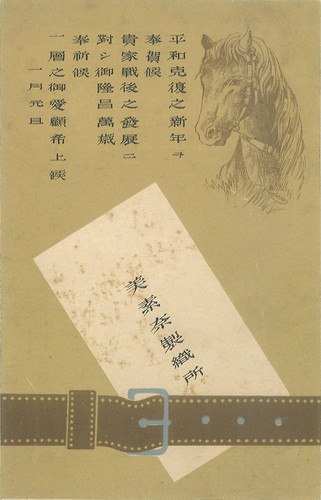 平和克復之新年ヲ
奉賀候
貴家戰後之發展ニ
對シ御隆昌萬歳
奉祈候
一層之御愛顧希上候
一月元旦
美素奈製織所